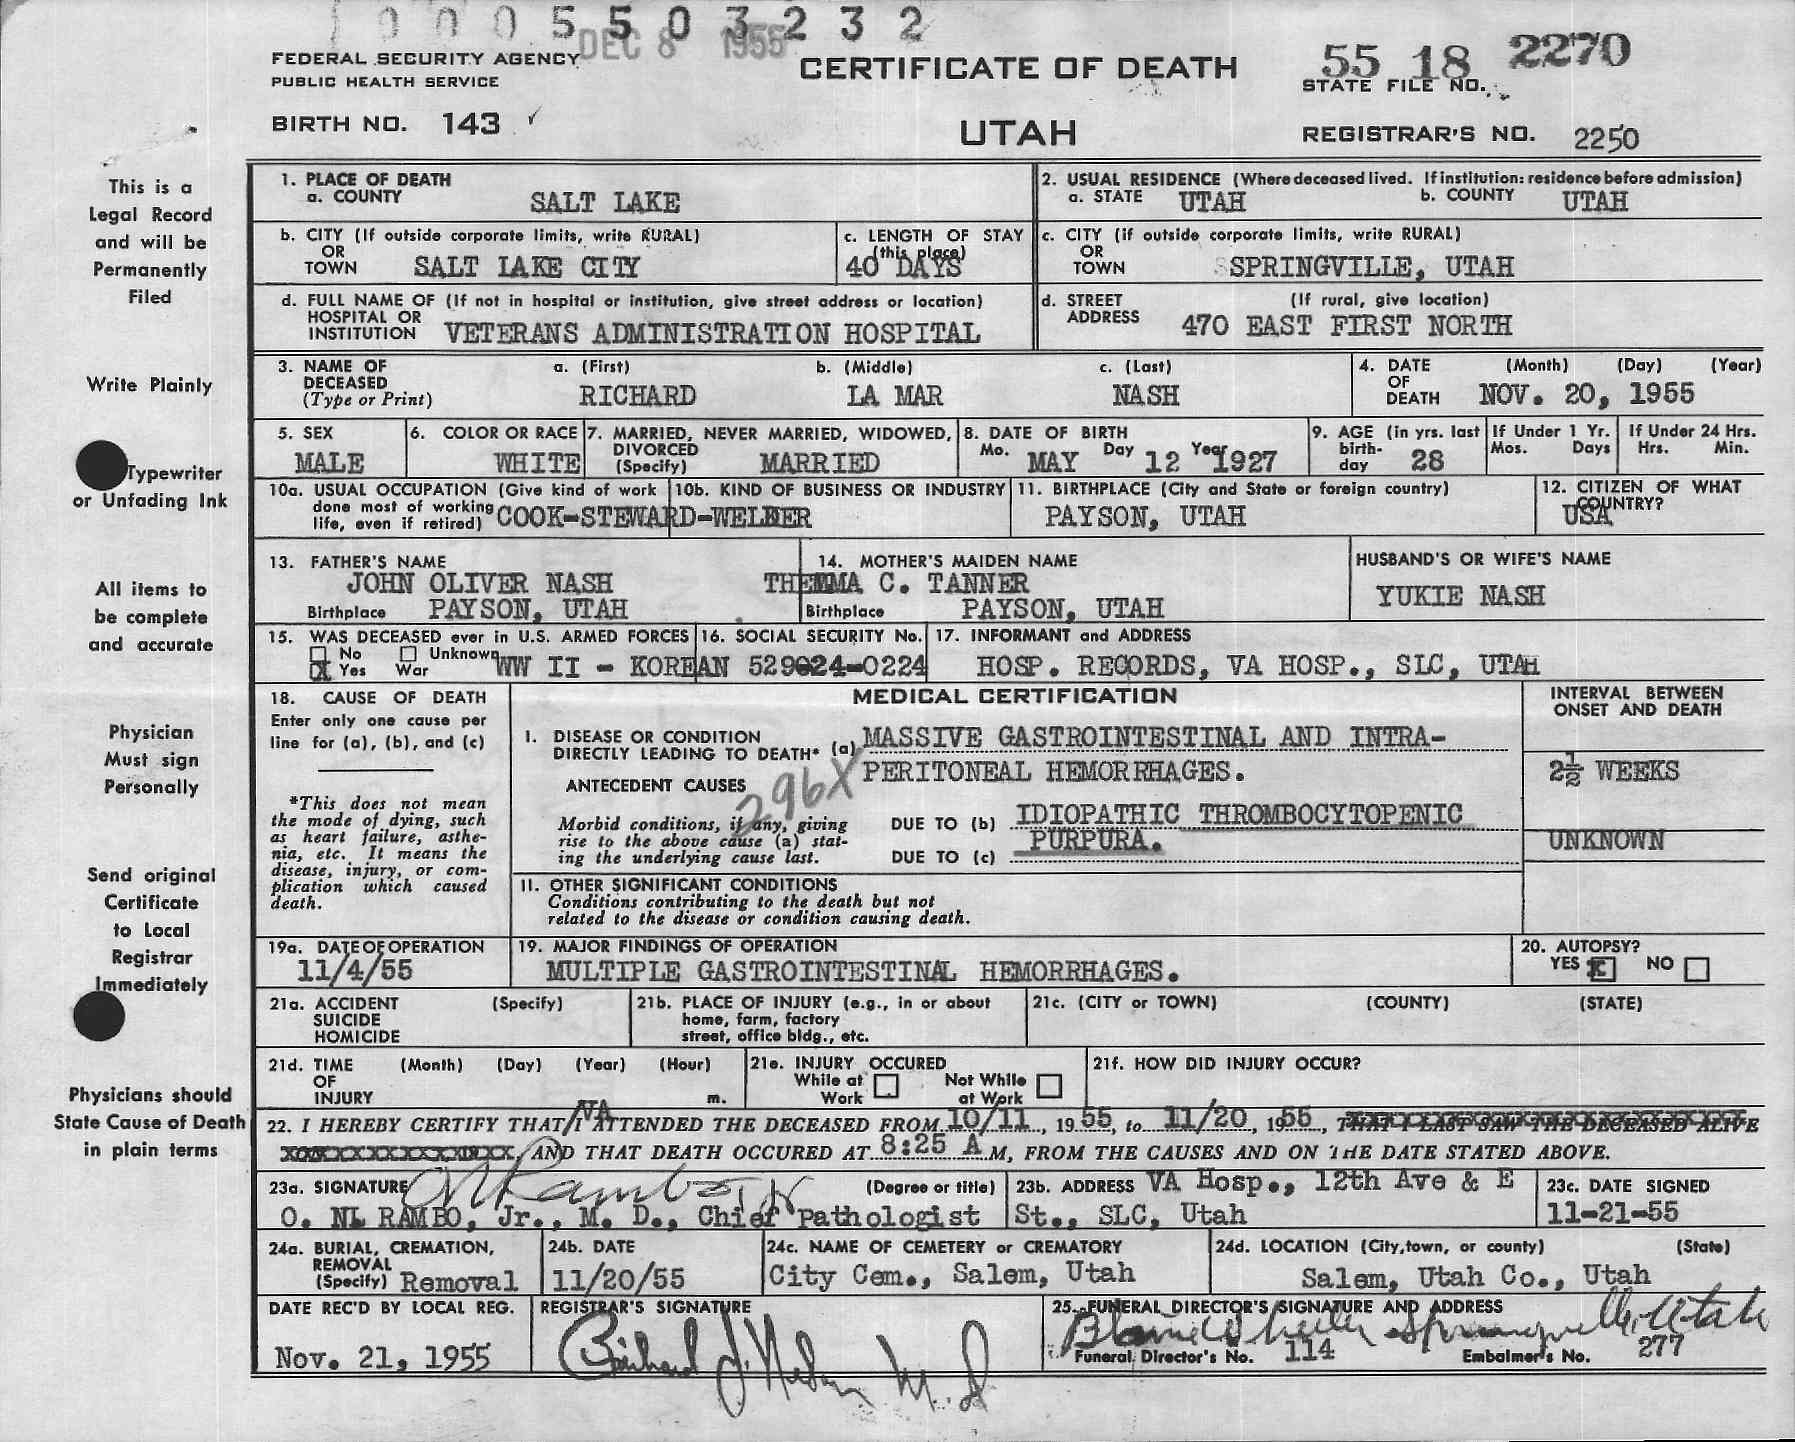 1 0 0 0 5 5 0 3 2 3 2
DEC 8 1955
FEDERAL SECURITY AGENCY
PUBLIC HEALTH SERVICE
CERTIFICATE OF DEATH
55 18 2270
STATE FILE NO.
BIRTH NO. 143
UTAH
REGISTRAR'S NO. 2250
This is a
Legal Record
and will be
Permanently
Filed
Write Plainly
Typewriter
or Unfading Ink
All items to
be complete
and accurate
Physician
Must sign
Personally
Send original
Certificate
to Local
Registrar
Immediately
Physicians should
State Cause of Death
in plain terms
1. PLACE OF DEATH
a. COUNTY SALT LAKE
2. USUAL RESIDENCE (Where deceased lived. If institution: residence before admission)
a. STATE UTAH b. COUNTY UTAH
b. CITY (If outside corporate limits, write RURAL)
OR
TOWN SALT LAKE CITY
c. LENGTH OF STAY
(this place)
40 DAYS
c. CITY (if outside corporate limits, write RURAL)
OR
TOWN SPRINGVILLE, UTAH
d. FULL NAME OF (If not in hospital or institution, give street address or location)
HOSPITAL OR
INSTITUTION VETERANS ADMINISTRATION HOSPITAL
d. STREET (If rural, give location)
ADDRESS 470 EAST FIRST NORTH
3. NAME OF a. (First) b. (Middle) c. (Last)
DECEASED
(Type or Print) RICHARD LA MAR NASH
4. DATE (Month) (Day) (Year)
OF
DEATH NOV. 20, 1955
5. SEX
MALE
6. COLOR OR RACE
WHITE
7. MARRIED, NEVER MARRIED, WIDOWED,
DIVORCED
(Specify) MARRIED
8. DATE OF BIRTH
Mo. MAY Day 12 Year 1927
9. AGE (in yrs. last
birth-
day 28
If Under 1 Yr.
Mos. Days
If Under 24 Hrs.
Hrs. Min.
10a. USUAL OCCUPATION (Give kind of work
done most of working
life, even if retired) COOK-STEWARD-WELDER
10b. KIND OF BUSINESS OR INDUSTRY
11. BIRTHPLACE (City and State or foreign country)
PAYSON, UTAH
12. CITIZEN OF WHAT
COUNTRY?
USA
13. FATHER'S NAME
JOHN OLIVER NASH
Birthplace PAYSON, UTAH
14. MOTHER'S MAIDEN NAME
C. TANNER
Birthplace PAYSON, UTAH
HUSBAND'S OR WIFE'S NAME
YUKIE NASH
15. WAS DECEASED ever in U.S. ARMED FORCES
No Unknown
X Yes War WW II - KOREAN
16. SOCIAL SECURITY No.
529-24-0224
17. INFORMANT and ADDRESS
HOSP. RECORDS, VA HOSP., SLC, UTAH
18. CAUSE OF DEATH
Enter only one cause per
line for (a), (b), and (c)
*This does not mean
the mode of dying, such
as heart failure, asthe-
nia, etc. It means the
disease, injury, or com-
plication which caused
death.
MEDICAL CERTIFICATION
INTERVAL BETWEEN
ONSET AND DEATH
I. DISEASE OR CONDITION
DIRECTLY LEADING TO DEATH* (a) MASSIVE GASTROINTESTINAL AND INTRA-
PERITONEAL HEMORRHAGES.
2½ WEEKS
ANTECEDENT CAUSES
296X
Morbid conditions, if any, giving
rise to the above cause (a) stat-
ing the underlying cause last.
DUE TO (b) IDIOPATHIC THROMBOCYTOPENIC
PURPURA.
DUE TO (c)
UNKNOWN
II. OTHER SIGNIFICANT CONDITIONS
Conditions contributing to the death but not
related to the disease or condition causing death.
19a. DATE OF OPERATION
11/4/55
19. MAJOR FINDINGS OF OPERATION
MULTIPLE GASTROINTESTINAL HEMORRHAGES.
20. AUTOPSY?
YES X NO
21a. ACCIDENT (Specify)
SUICIDE
HOMICIDE
21b. PLACE OF INJURY (e.g., in or about
home, farm, factory
street, office bldg., etc.
21c. (CITY or TOWN) (COUNTY) (STATE)
21d. TIME (Month) (Day) (Year) (Hour)
OF
INJURY m.
21e. INJURY OCCURED
While at Not While
Work at Work
21f. HOW DID INJURY OCCUR?
22. I HEREBY CERTIFY THAT /I VA ATTENDED THE DECEASED FROM 10/11, 1955, to 11/20, 1955, THAT I LAST SAW THE DECEASED ALIVE
AND THAT DEATH OCCURED AT 8:25 A M, FROM THE CAUSES AND ON THE DATE STATED ABOVE.
23a. SIGNATURE (Degree or title)
RAMBO, Jr., M. D., Chief Pathologist
23b. ADDRESS VA Hosp., 12th Ave & E
St., SLC, Utah
23c. DATE SIGNED
11-21-55
24a. BURIAL, CREMATION,
REMOVAL
(Specify) Removal
24b. DATE
11/20/55
24c. NAME OF CEMETERY or CREMATORY
City Cem., Salem, Utah
24d. LOCATION (City, town, or county) (State)
Salem, Utah Co., Utah
DATE REC'D BY LOCAL REG.
Nov. 21, 1955
REGISTRAR'S SIGNATURE
M.D
25. FUNERAL DIRECTOR'S SIGNATURE AND ADDRESS
Springville, Utah
Funeral Director's No. 114 Embalmer's No. 277